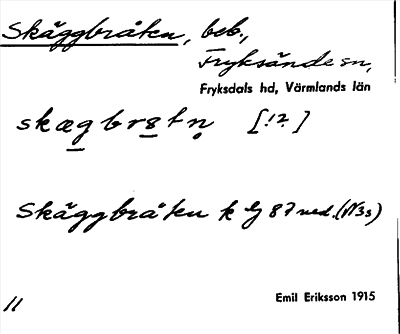 Skäggbråten, beb.,
Fryksände sn,
Fryksdals hd, Värmlands län
skægbr8tn [!2]
Skäggbråten k bj 87 ned. (N3s)
11
Emil Eriksson 1915